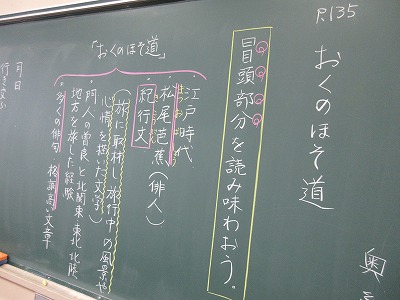 R135
奥
おくのほそ道
冒頭部分を読み味わおう。
「おくのほそ道」
・江戸時代
・松尾芭蕉(俳人)
・紀行文
(旅に取材し、旅行中の風景や
心情を描いた文学)
・門人の曽良と北関東、東北、北陸
地方を旅した経験
・多くの俳句・格調高い文章
月日
行き交ふ